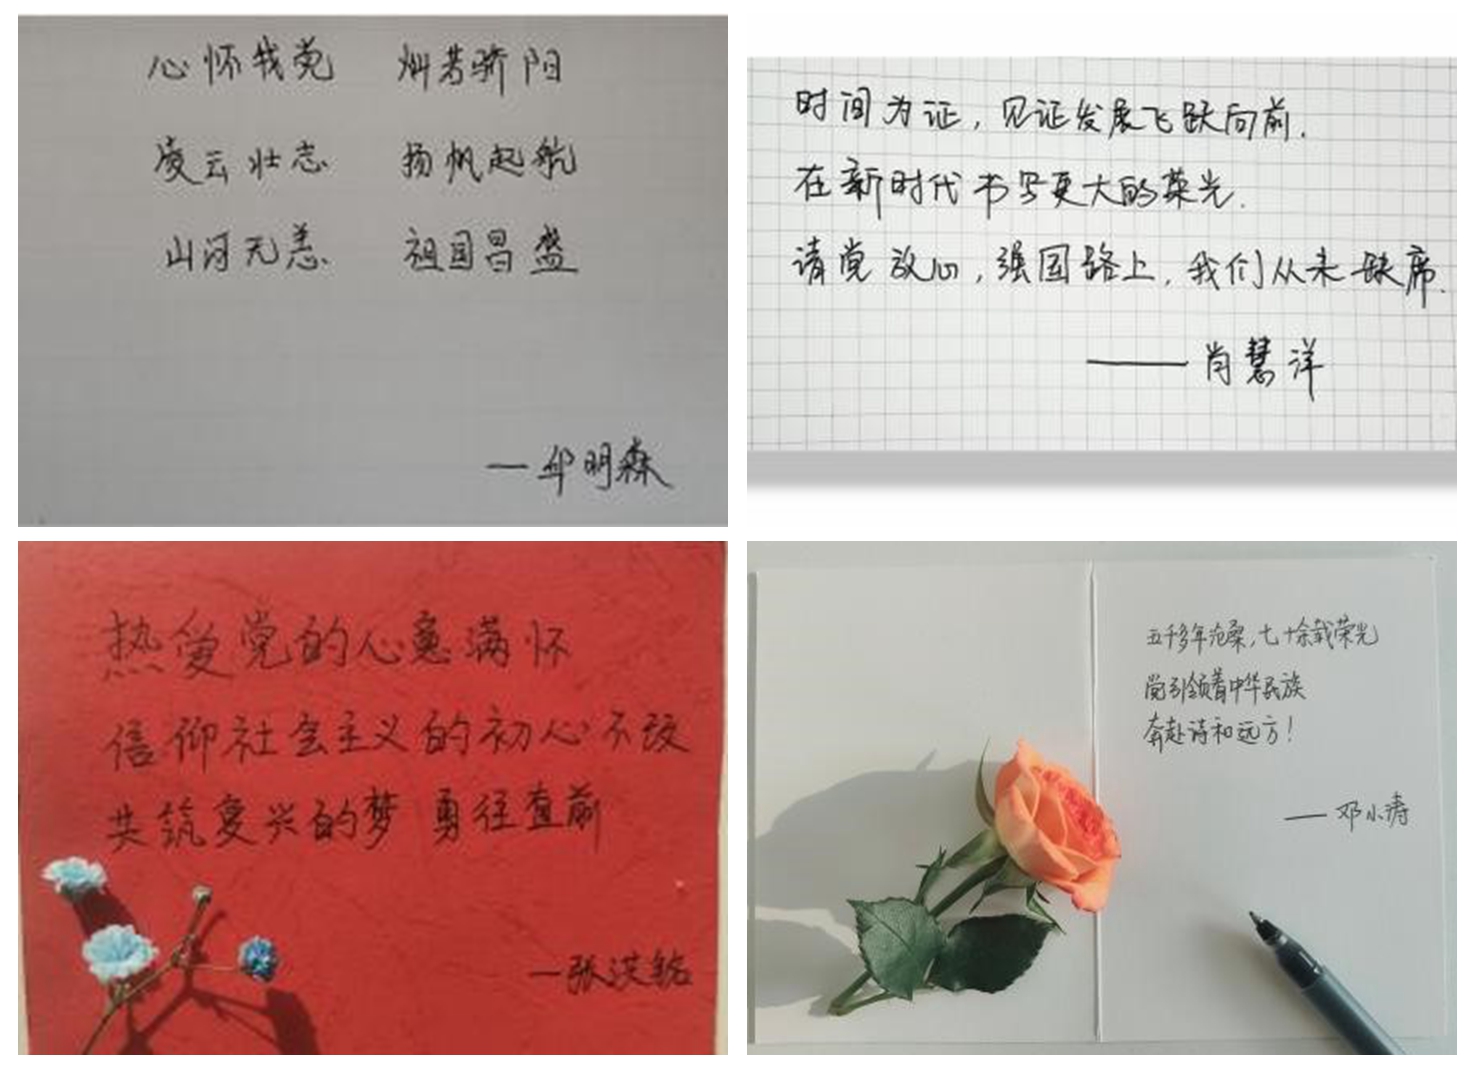 心怀我党 灿若骄阳
凌云壮志 扬帆起航
山河无恙 祖国昌盛
—邱明森
时间为证,见证发展飞跃向前.
在新时代书写更大的荣光.
请党放心,强国路上,我们从未缺席.
——肖慧洋
热爱党的心意满怀
信仰社会主义的初心不改
共筑复兴的梦 勇往直前
—张洪铭
五千多年沧桑,七十余载荣光
党引领着中华民族
奔赴诗和远方!
—邓小涛